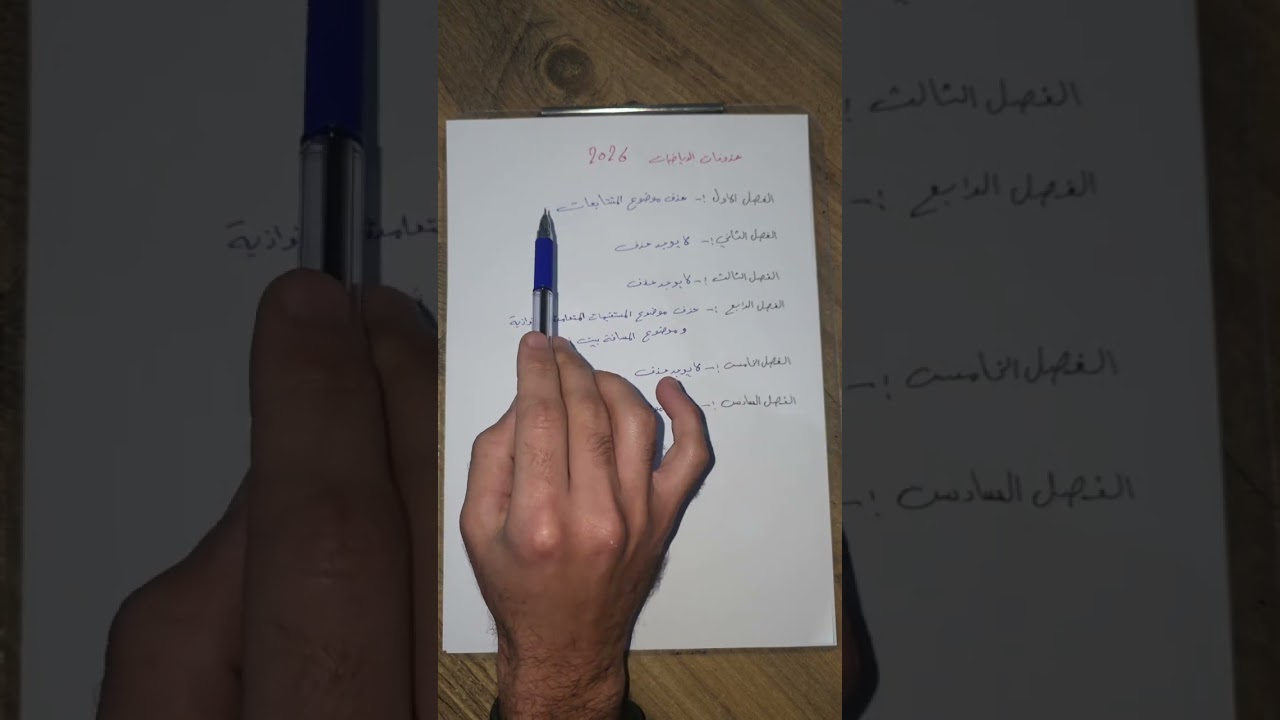 محذوفات الرياضيات 2026
الفصل الاول :- حذف موضوع المتتابعات
الفصل الثاني :- لا يوجد حذف
الفصل الثالث :- لا يوجد حذف
الفصل الرابع :- حذف موضوع المستقيمات المتعامدة
وموضوع المسافة بين
الفصل الخامس :- لا يوجد حذف
الفصل السادس :-